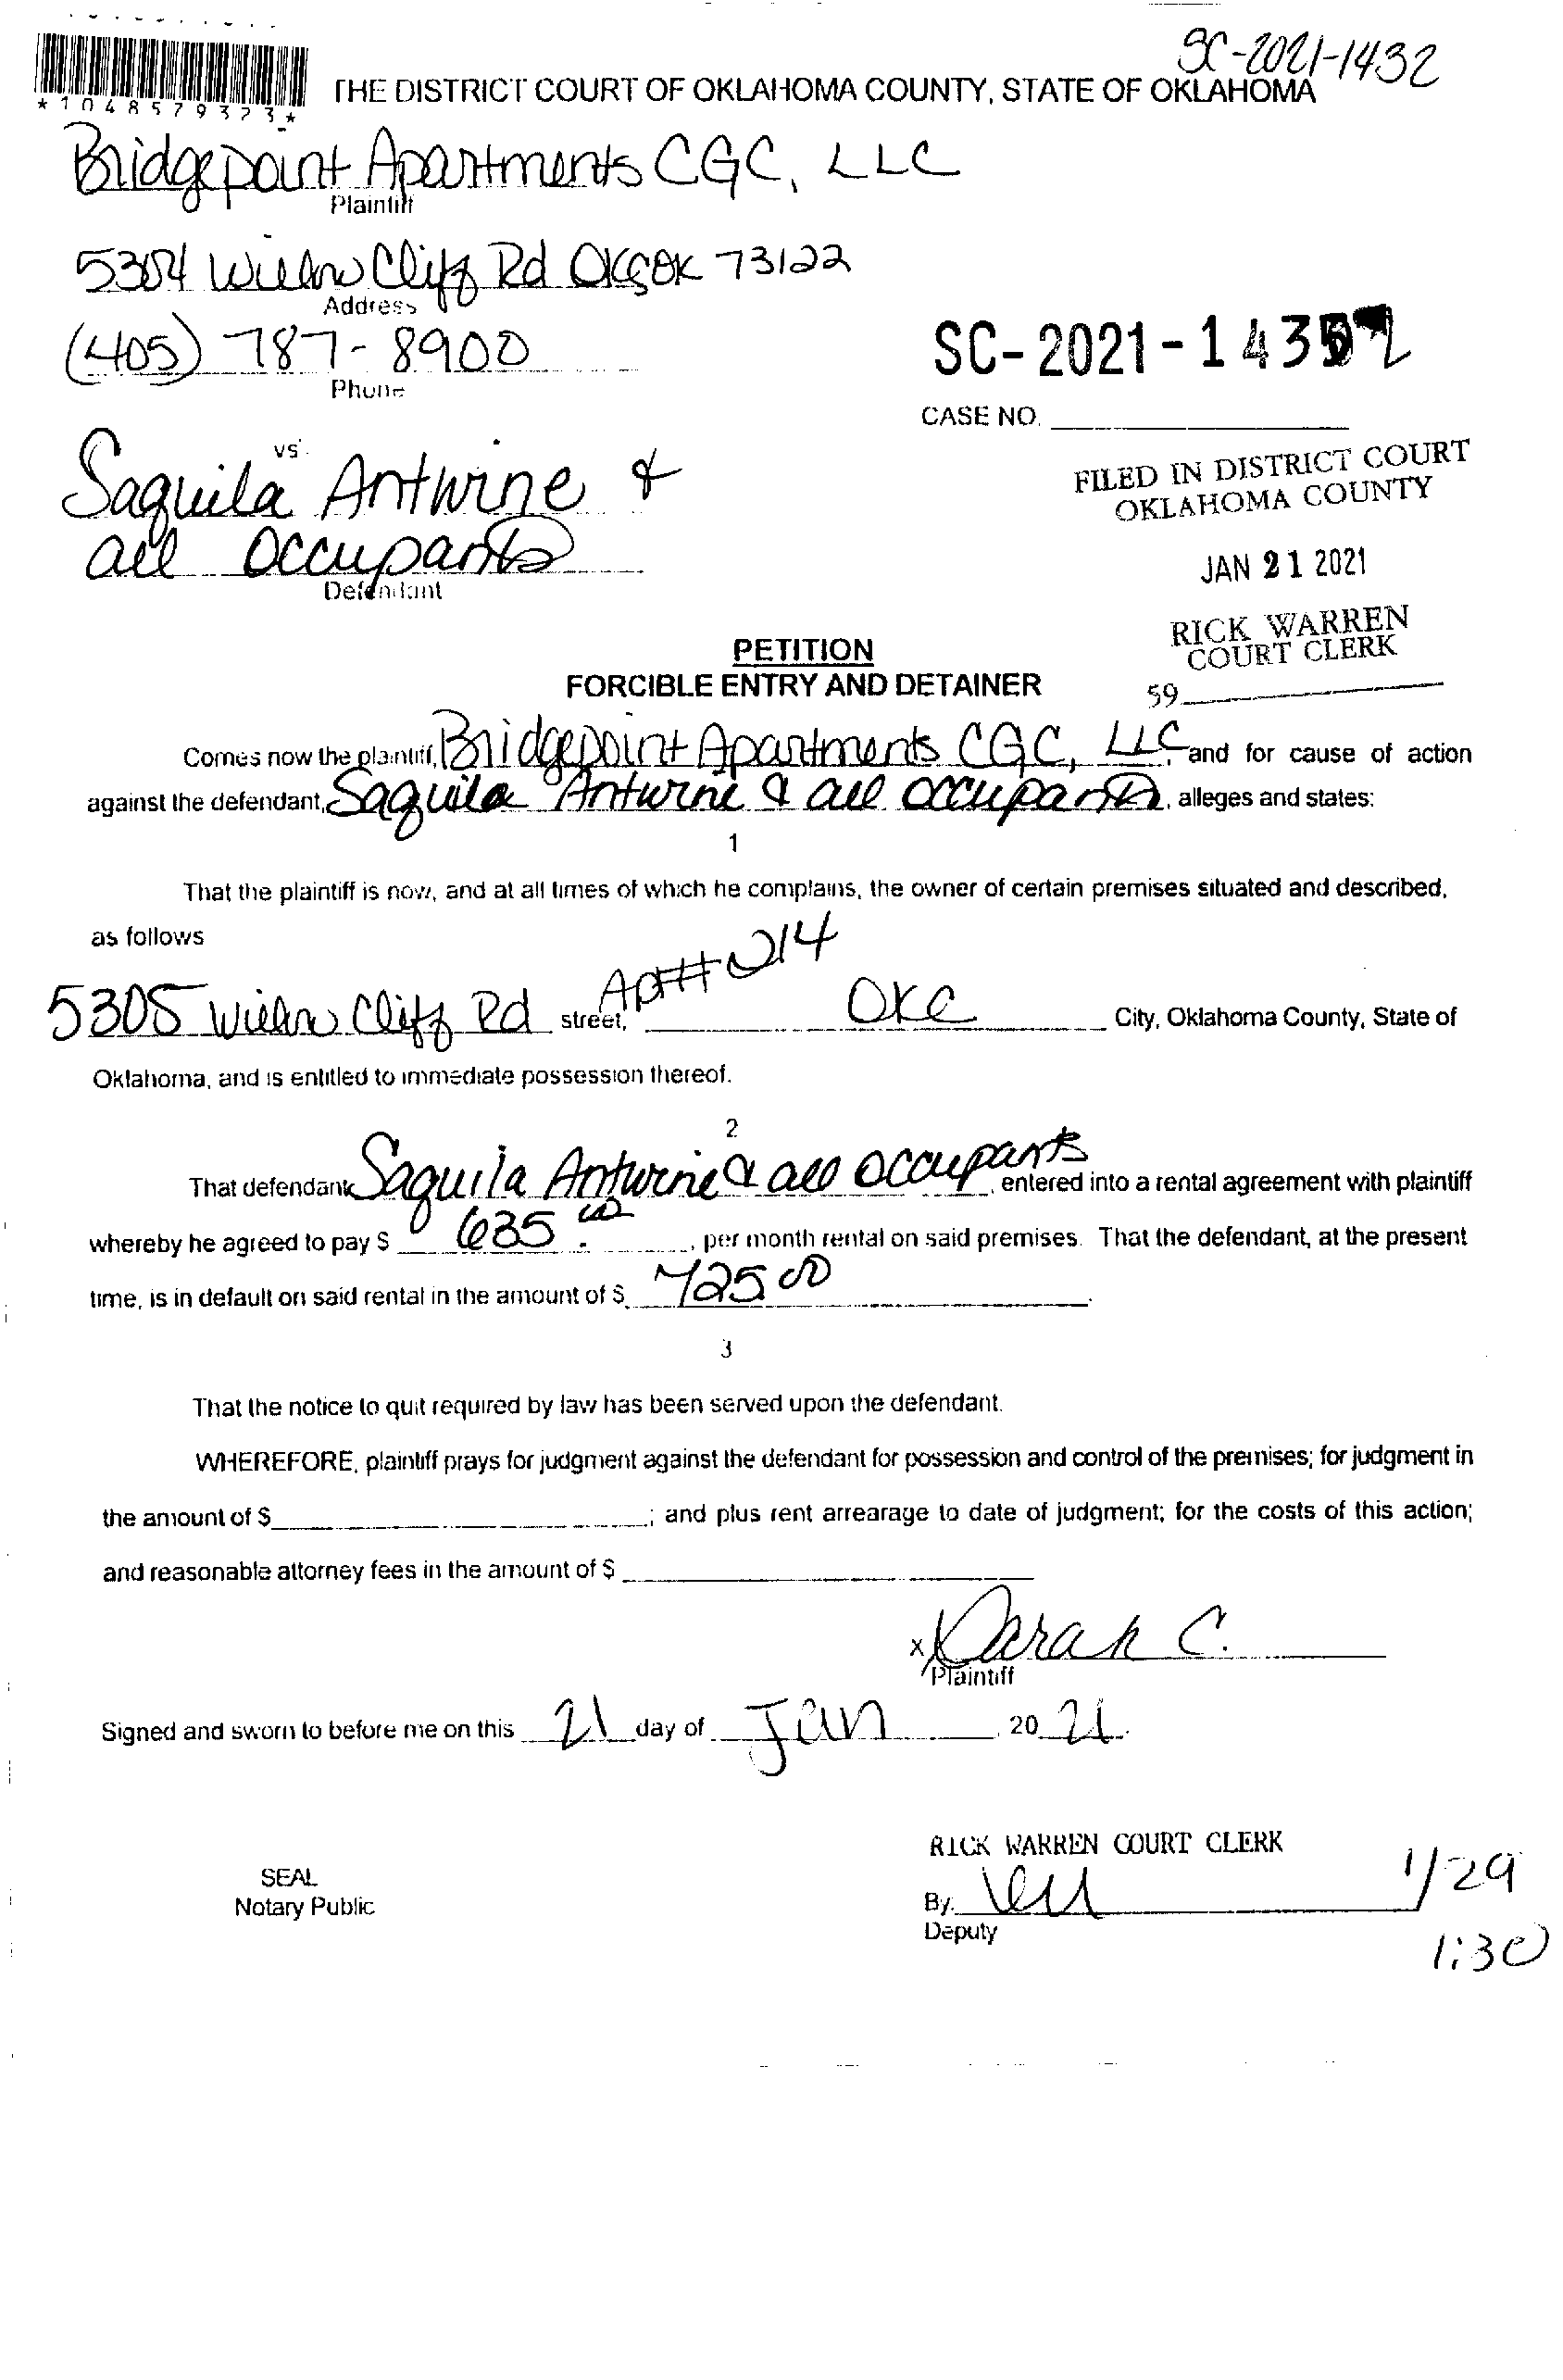 SC-2021-1432
*1048579323*
THE DISTRICT COURT OF OKLAHOMA COUNTY, STATE OF OKLAHOMA
Bridgepoint Apartments CGC, LLC
Plaintiff
5304 Willow Cliff Rd OKC OK 73122
Address
(405) 787-8900
Phone
SC-2021-1432
CASE NO.
vs.
Saquila Antwine &
all occupants
Defendant
FILED IN DISTRICT COURT
OKLAHOMA COUNTY
JAN 21 2021
RICK WARREN
COURT CLERK
59
PETITION
FORCIBLE ENTRY AND DETAINER
Comes now the plaintiff, Bridgepoint Apartments CGC, LLC, and for cause of action
against the defendant, Saquila Antwine & all occupants, alleges and states:
1
That the plaintiff is now, and at all times of which he complains, the owner of certain premises situated and described,
as follows
5305 Willow Cliff Rd street, Apt# 214 OKC City, Oklahoma County, State of
Oklahoma, and is entitled to immediate possession thereof.
2
That defendant, Saquila Antwine & all occupants, entered into a rental agreement with plaintiff
whereby he agreed to pay $ 635.00, per month rental on said premises. That the defendant, at the present
time, is in default on said rental in the amount of $ 725 00.
3
That the notice to quit required by law has been served upon the defendant.
WHEREFORE, plaintiff prays for judgment against the defendant for possession and control of the premises; for judgment in
the amount of $ ; and plus rent arrearage to date of judgment; for the costs of this action;
and reasonable attorney fees in the amount of $
x Sarah C.
Plaintiff
Signed and sworn to before me on this 21 day of Jan, 20 21.
RICK WARREN COURT CLERK
SEAL
Notary Public
By.
Deputy
1/29
1:30